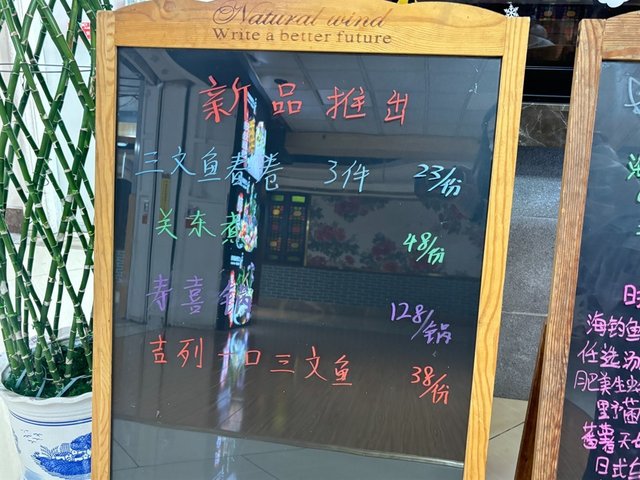 Natural wind
Write a better future
新品推出
三文鱼春卷 3件 23/份
关东煮 48/份
寿喜锅 128/锅
吉列一口三文鱼 38/份
海钓鱼
任选汤
肥美生蚝
野菌
蕃薯天
日式